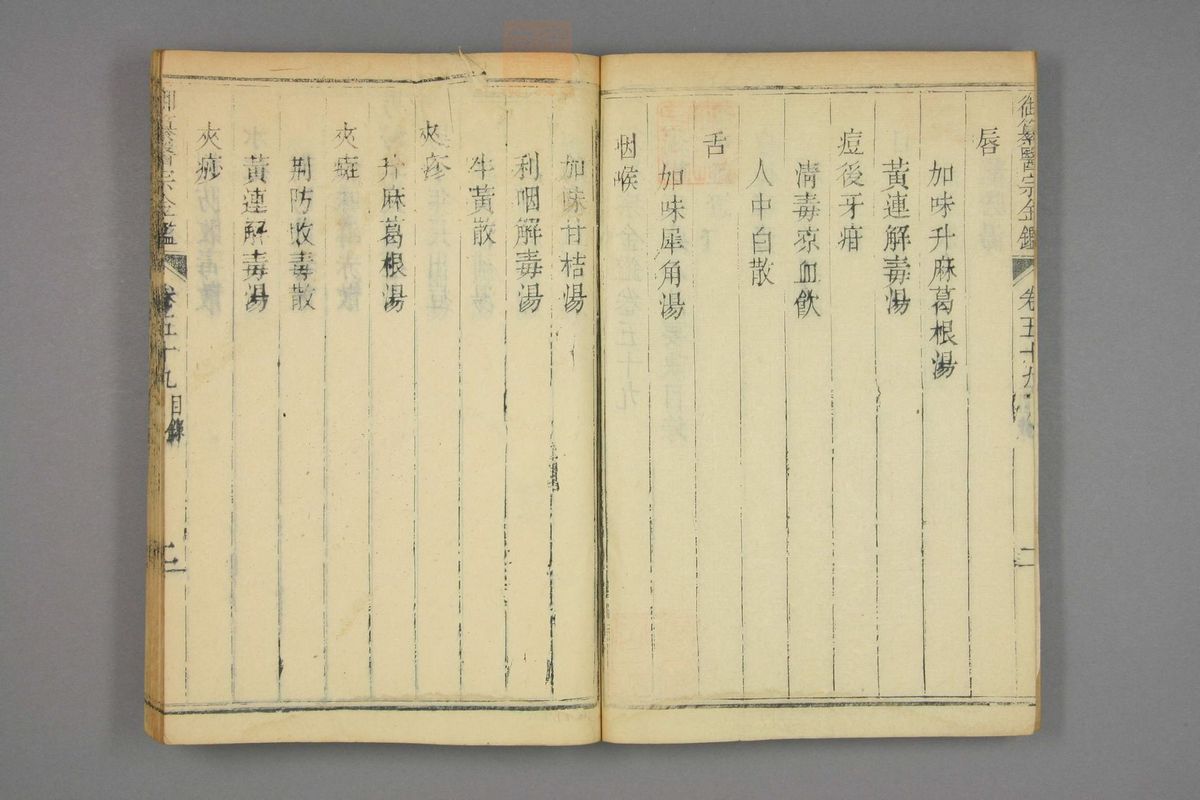 御纂醫宗金鑑 卷五十九
唇
加味升麻葛根湯
黃連解毒湯
痘後牙疳
清毒凉血飲
人中白散
舌
加味犀角湯
咽喉
加味甘桔湯
利咽解毒湯
牛黃散
夾疹
升麻葛根湯
夾斑
荆防敗毒散
夾痧
黃連解毒湯
御纂醫宗金鑑 卷五十九 目錄 二